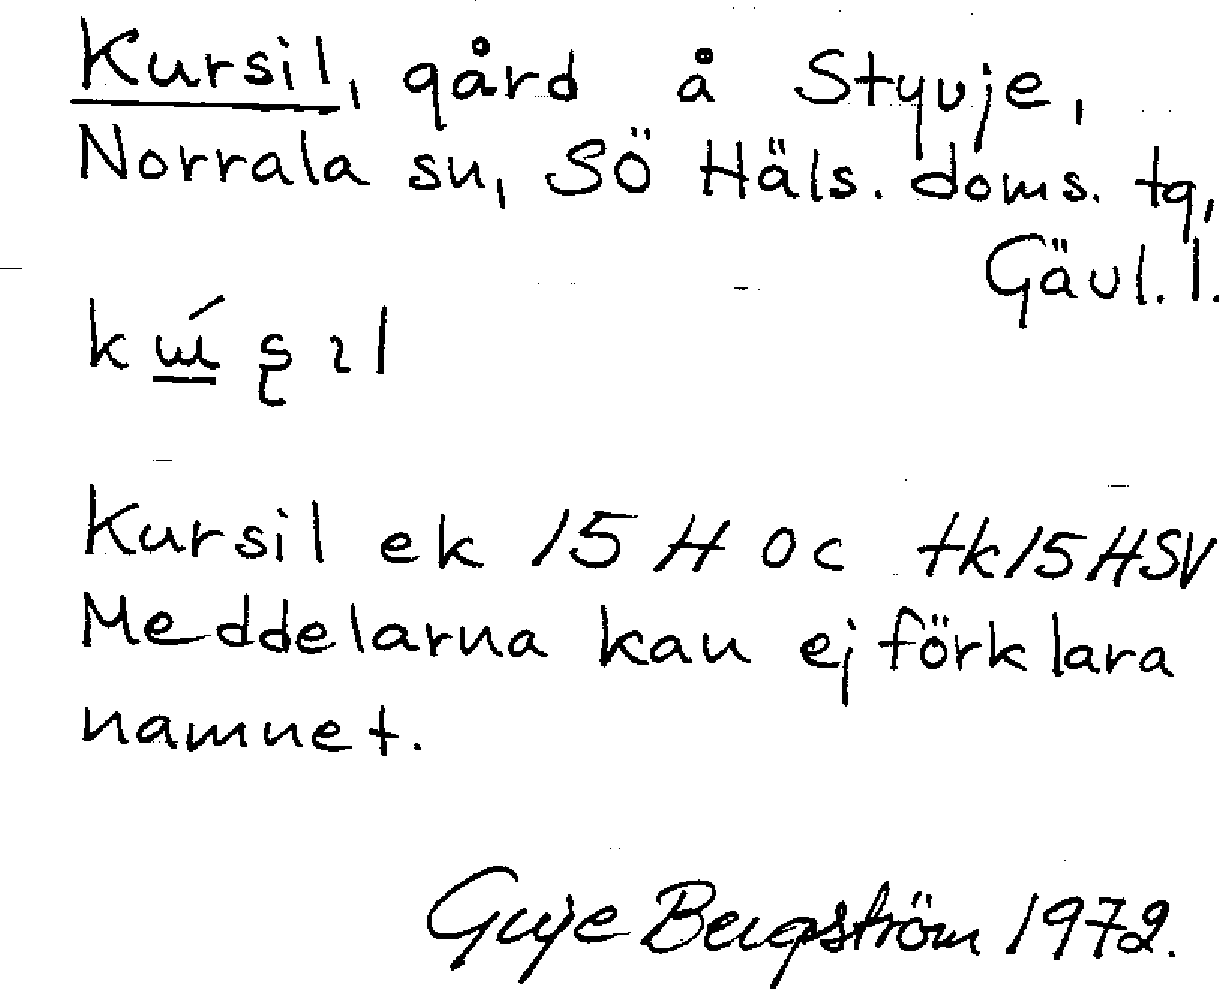 Kursil, gård å Styvje,
Norrala sn, SÖ Häls. doms. tg,
Gävl. l.
Kursil ek 15 H 0c tk15HSV
Meddelarna kan ej förklara
namnet.
Bergström 1972.